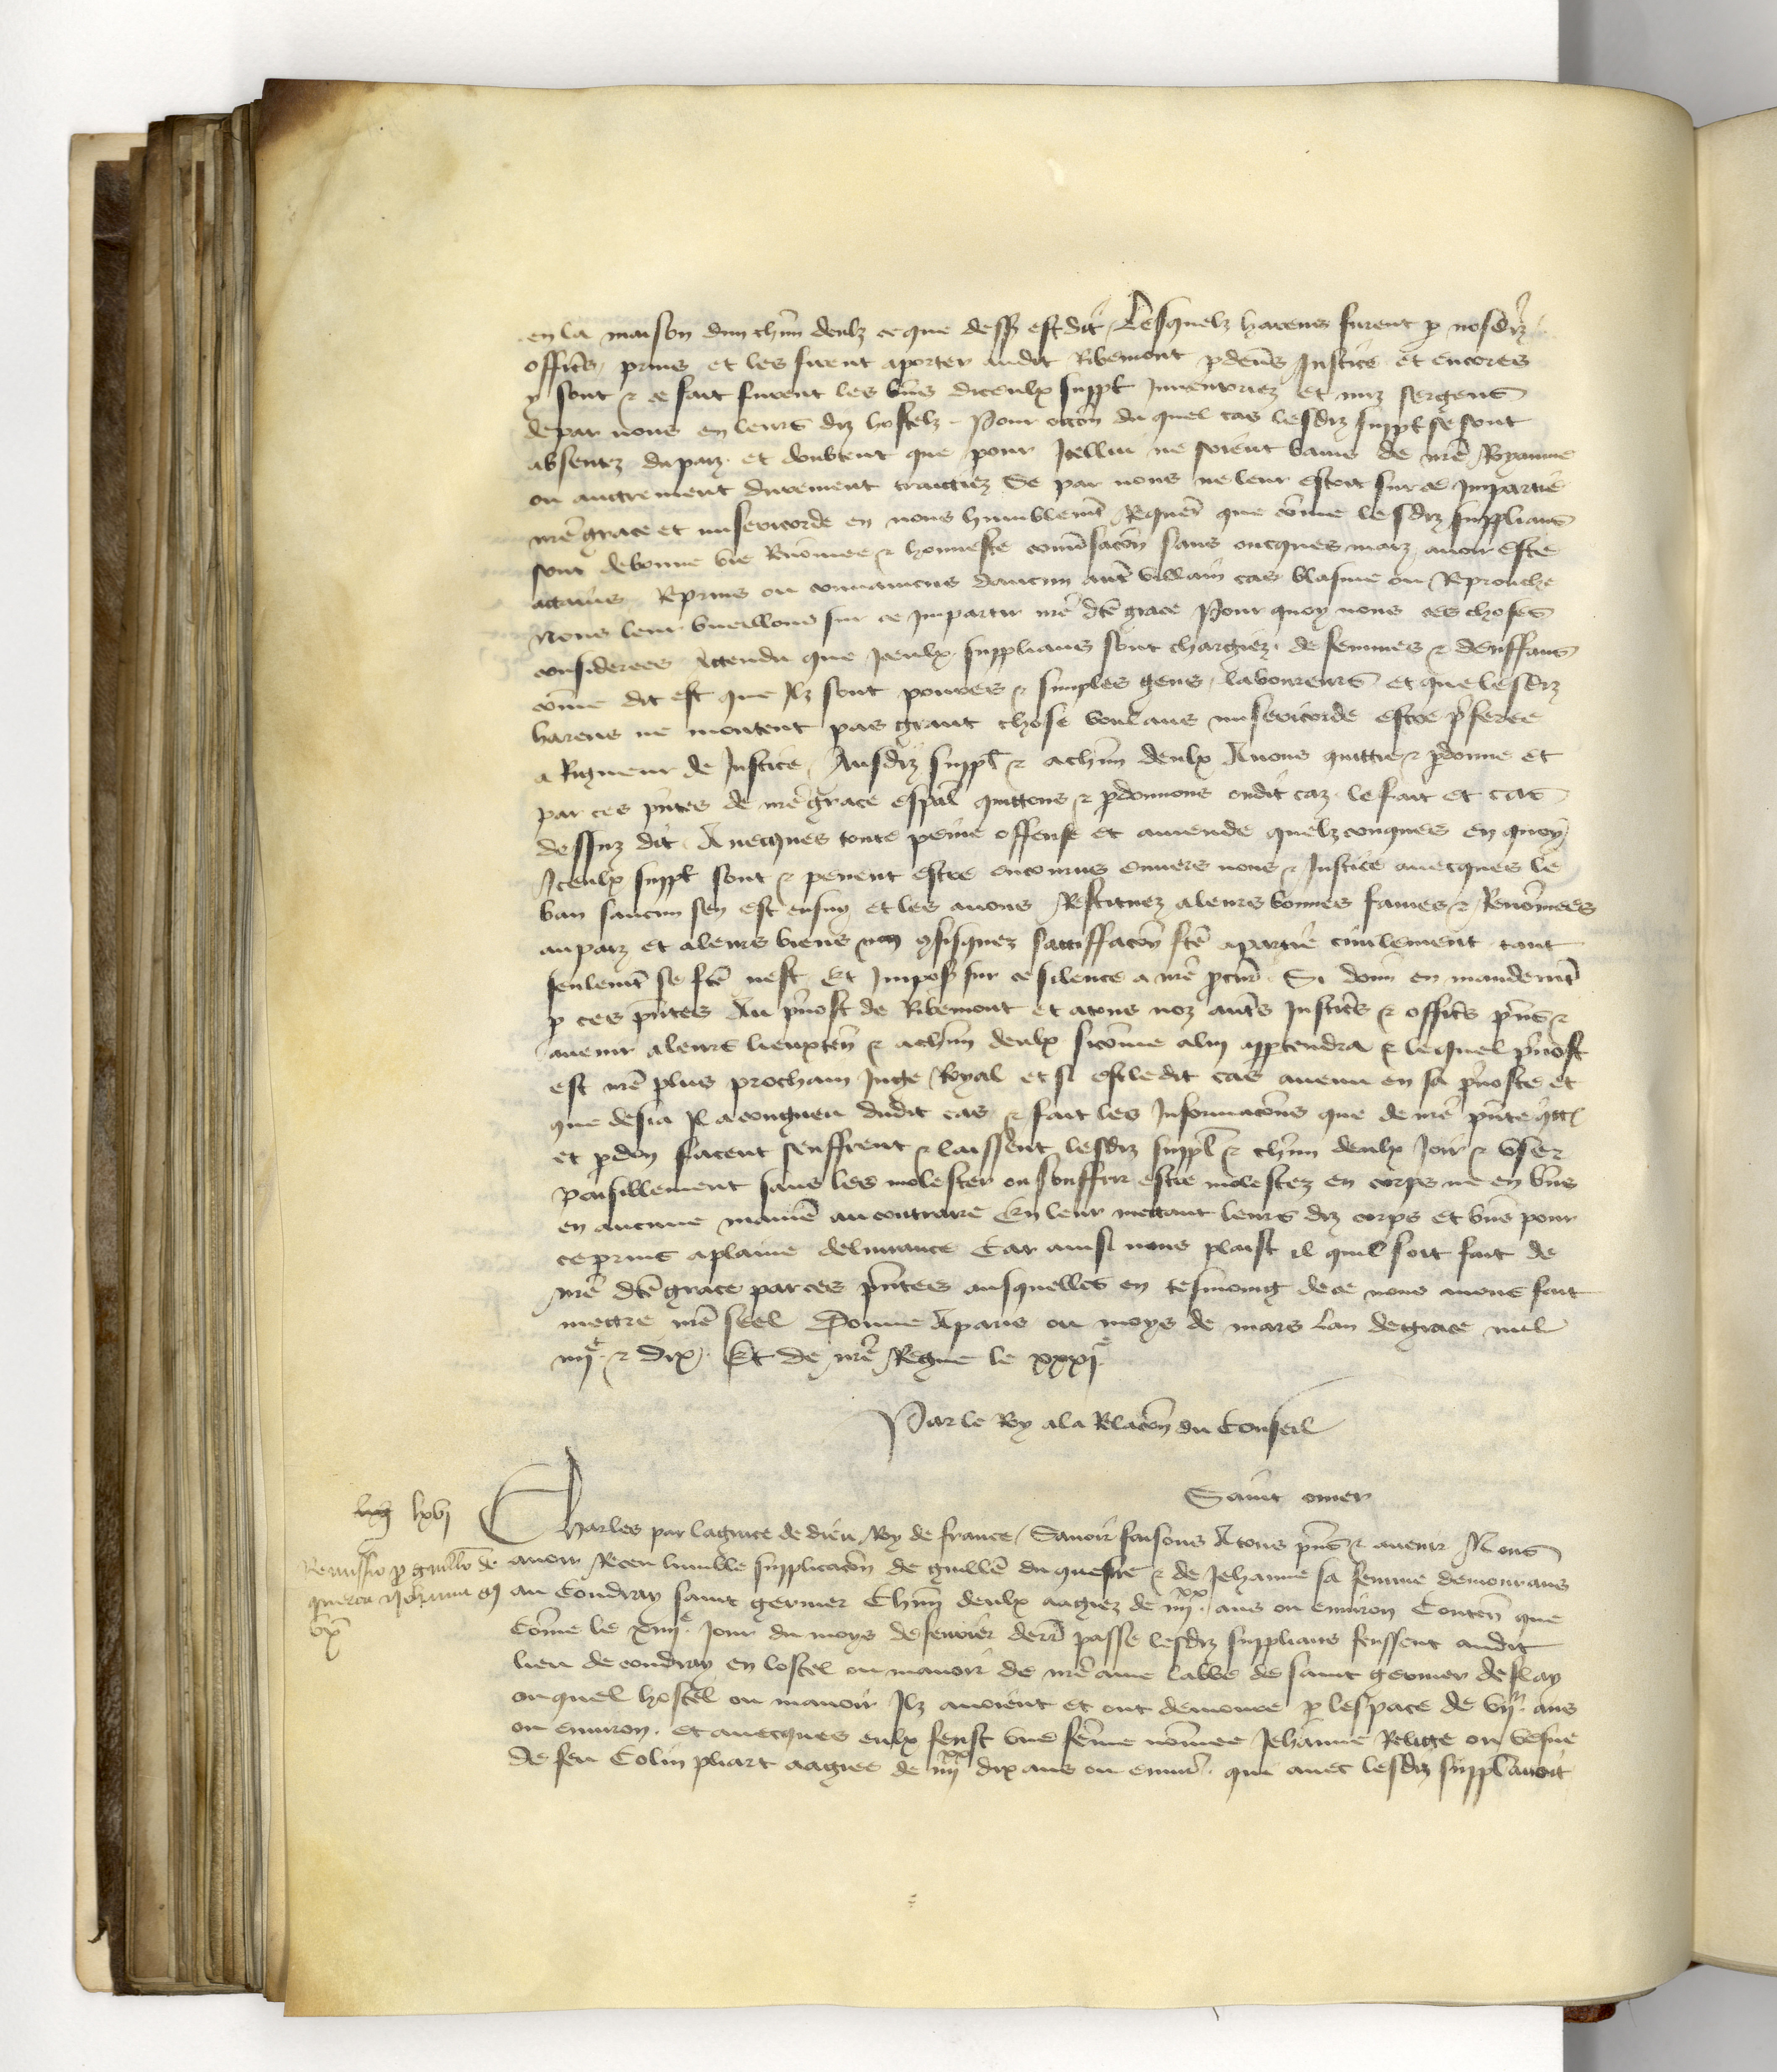 en la maison dun chũn deulz ce que dessꝰ est dit, Lesquelz harens furent ꝑ nosdiz
officẽs, prins et les firent aporter audit Ribemont ꝑdeũs Justice et encores
y sont ⁊ ce fait furent les bñs diceulx suppł Inventoriez et mis sergens
depar nous en leurs diz hostelz. Pour occõn du quel cas lesdiz suppł se sont
absentez du paiz. et doubtent que pour Icellui ne soient banis de nr̃e Royaume
ou autrement durement traictiez Se par nous ne leur estoit sur ce Impartie
nr̃e grace et misericorde en nous humblemẽt Requerãt que cõme lesdiz supplians
sont de bonne vie Renõmee ⁊ honneste conṽsacõn sans oncques mais avoir este
attains Reprins ou convaincus daucun autr̃ villain cas blasme ou Reprouche
Nous leur vueillons sur ce Impartir nr̃e dc̃e grace Pour quoy nous ces choses
considerees Attendu que Iceulx supplians sont chargiez. de femmes ⁊ denffans
cõme dit est que Ilz sont povres ⁊ simples gens, laboureurs et que lesdiz
harens ne montent pas grant chose voulans misericorde estre p̃feree
a Rigueur de Justice, Ausdiz suppł ⁊ a chũn deulx Avons quittie ⁊ ꝑdonne et
par ces pñtes de nr̃e grace esp̃al quittons ⁊ ꝑdonnons oudit caz. le fait et cas
dessuz dit. Avecques toute peine offense et amende quelzconques en quoy
Iceulx suppł sont ⁊ pevent estre encourus envers nous ⁊ Justice avecques le
ban saucun sen est ensuy et les avons Restituez a leurs bonnes fames ⁊ Renõmees
au paiz et a leurs biens non ꝯfisquez satiffacõn fc̃e a partie civilement tant
seulemẽt se fc̃e nest Et Imposꝰ sur ce silence a nr̃e ꝓcur̃. Si donñ en mandemẽt
ꝑ ces pñtes Au p̃vost de Ribemont et a tous noz autr̃s Justic̃s ⁊ offic̃s pñs ⁊
avenir a leurs lieuxteñ ⁊ a chũn deulx sicõme a luy apptendra ⁊ lequel p̃vost
est nr̃e plus prochain Juge Royal et si est ledit cas avenu en sa p̃voste et
que desia Il a congneu dudit cas ⁊ fait les Informacõns que de nr̃e pñte q̃tt.
et ꝑdon facent seuffrent ⁊ laissent lesdiz suppł ⁊ chũn deulx Joir ⁊ user
paisiblement sans les molester ou souffrir estre molestez en corps ne en bñs
en aucune manie᷑ au contraire En leur mettant leurs diz corps et bñs pour
ce prins a plaine delivrance Car ainsi nous plaist il quil soit fait de
nr̃e dc̃e grace par ces pñtees ausquelles en tesmoing de ce nous avons fait
mettre nr̃e seel Donne A paris ou moys de mars Lan de grace mil
iiijᶜ. ⁊ dix. Et de nr̃e Regne le xxxjᵉ
Par le Roy a la Relacõn du Conseil
Saint omer
lxvj Charles par la grace de dieu Roy de france, Savoir faisons A tous pñs ⁊ avenir Nous
Remissio ꝓ guillõ de avoir Receu humble supplicacõn de guillẽ du quesne ⁊ de Jehanne sa femme demourans
quercu ⁊ Johanna eꝰ au Coudray saint germer Chũn deulx aagiez de iiijˣˣ. ans ou environ Conteñ que
vx̃ Cõme le xiiijᵉ. Jour du moys de fevrier derr̃ passe lesdiz supplians feussent audit
lieu de coudray en lostel ou manoir de nr̃e ame labbe de saint germer de flay
ouquel hostel ou manoir Ilz avoient et ont demoure ꝑ lespace de vij. ans
ou environ. et avecques eulx feust une fẽme nõmee Jehanne Relige ou vesve
de feu Colin pliart aagiee de iiijˣˣ dix ans ou envir̃. qui avec lesdiz suppł avoit